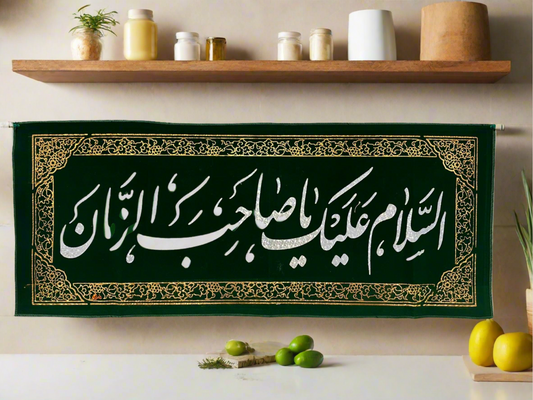 السَّلام عَلَیکَ یا صاحِبَ الزَّمان